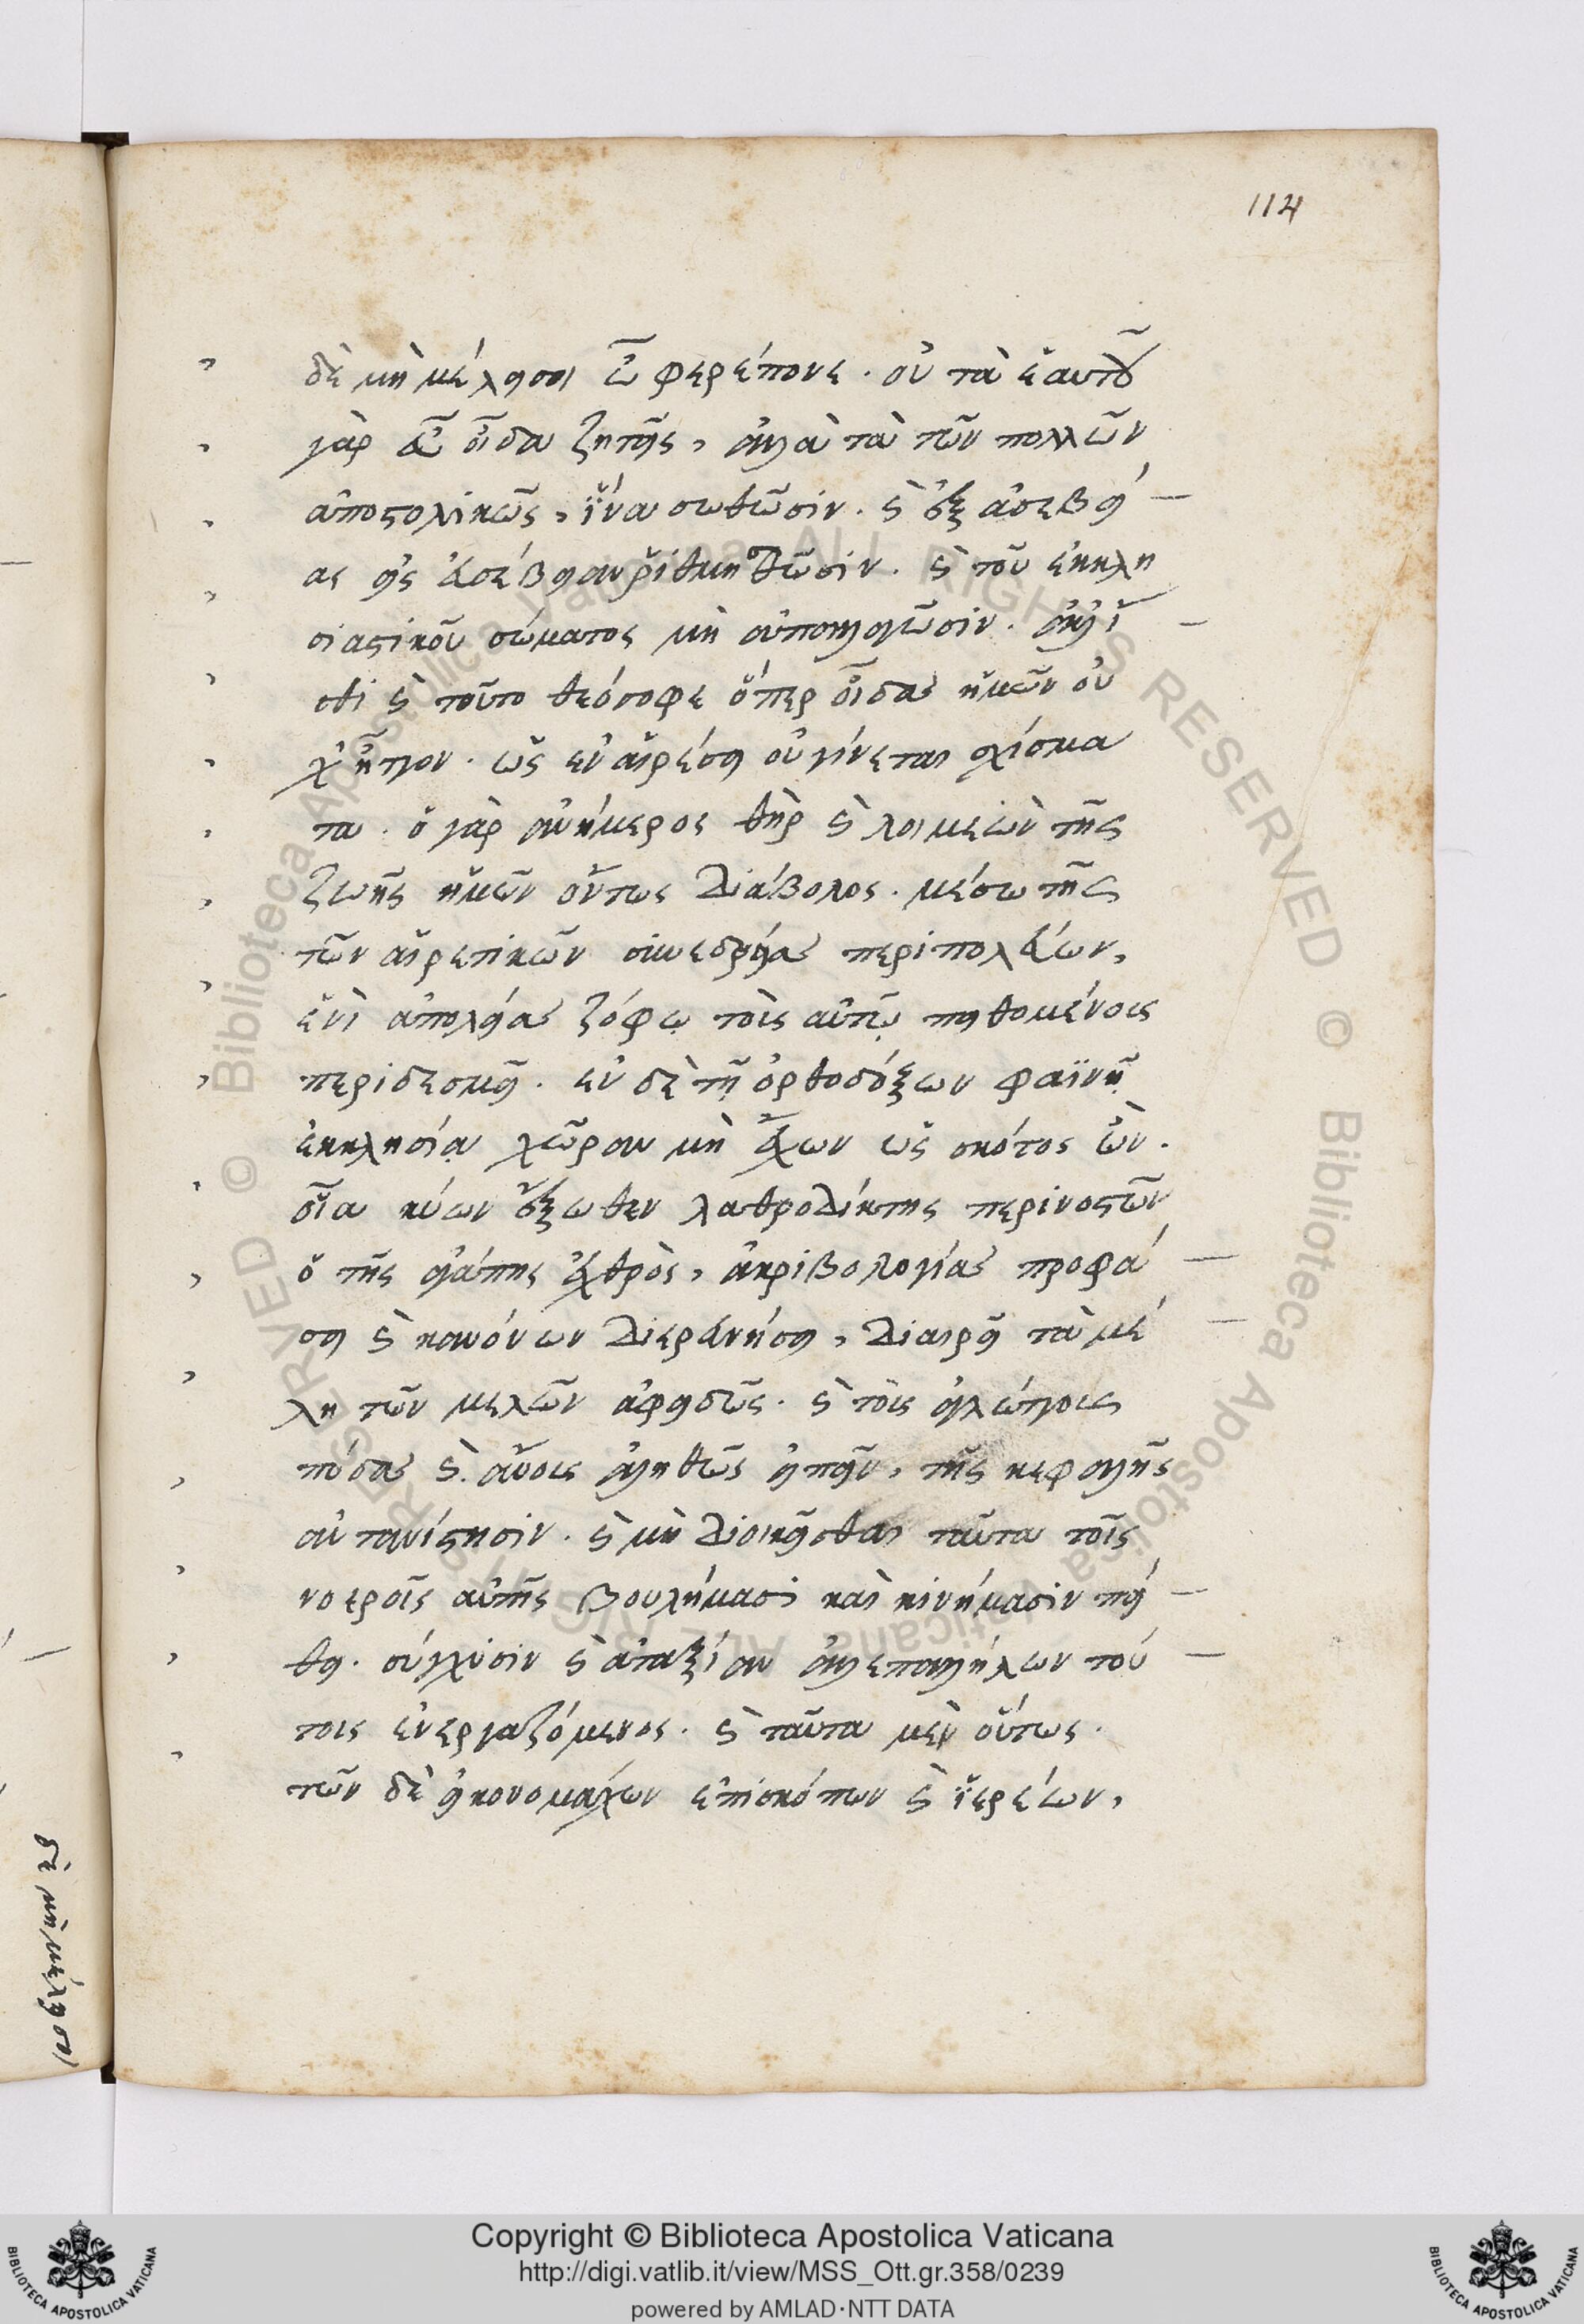 114
δὲ μὴ μέλησοι ὦ φερέπονε. οὐ τὰ ἑαυτοῦ
γὰρ εὖ οἶδα ζητεῖς, ἀλλὰ τὰ τῶν πολλῶν
ἀποστολικῶς, ἵνα σωθῶσιν. καὶ ἐξ ἀσεβεί
ας εἰς εὐσέβειαν ῥιθμηθῶσιν. καὶ τοῦ ἐκκλη
σιαστικοῦ σώματος μὴ
σθι καὶ τοῦτο θεόσοφε ὅπερ οἶδας ἡμῶν οὐ
χ ἧττον. ὡς ἐν αἱρέσει οὐ γίνεται σχίσμα
τα. ὁ γὰρ ἀνήμερος θὴρ καὶ λοιμεὼν τῆς
ζωῆς ἡμῶν ὄντως διάβολος. μέσω τῆς
τῶν αἱρετικῶν συνεδρείας περιπολεύων,
ἑνὶ ἀπολείας ζόφῳ τοῖς αὐτῷ πειθομένοις
περιδεσμεῖ. ἐν δὲ τῇ ὀρθοδόξων φαϊνῇ
ἐκκλησίᾳ χῶραν μὴ ἔχων ὡς σκότος ὢν.
οἷα κύων ἔξωθεν λαθροδίκτης περινοστῶν
ὁ τῆς ἀγάπης ἐχθρὸς, ἀκριβολογίας προφά
σει καὶ κανόνων διερευνήσει, διαιρεῖ τὰ μέ
λη τῶν μελῶν ἀφειδῶς. καὶ τοῖς
πόδας καὶ αὖοις ἀληθῶς εἰπεῖν, τῆς κεφαλῆς
ἀντανίστησιν. καὶ μὴ διοικεῖσθαι ταῦτα τοῖς
νοεροῖς αὐτῆς βουλήμασι καὶ κινήμασιν πεί
θει. σύγχυσιν καὶ ἀταξίαν ἀλλεπαλλήλων τού
τοις ἐνεργαζόμενος. καὶ ταῦτα μὲν οὕτως.
τῶν δὲ εἰκονομάχων ἐπισκόπων καὶ ἱερέων,
δὲ μὴ μέλησοι
Copyright © Biblioteca Apostolica Vaticana
http://digi.vatlib.it/view/MSS_Ott.gr.358/0239
powered by AMLAD·NTT DATA